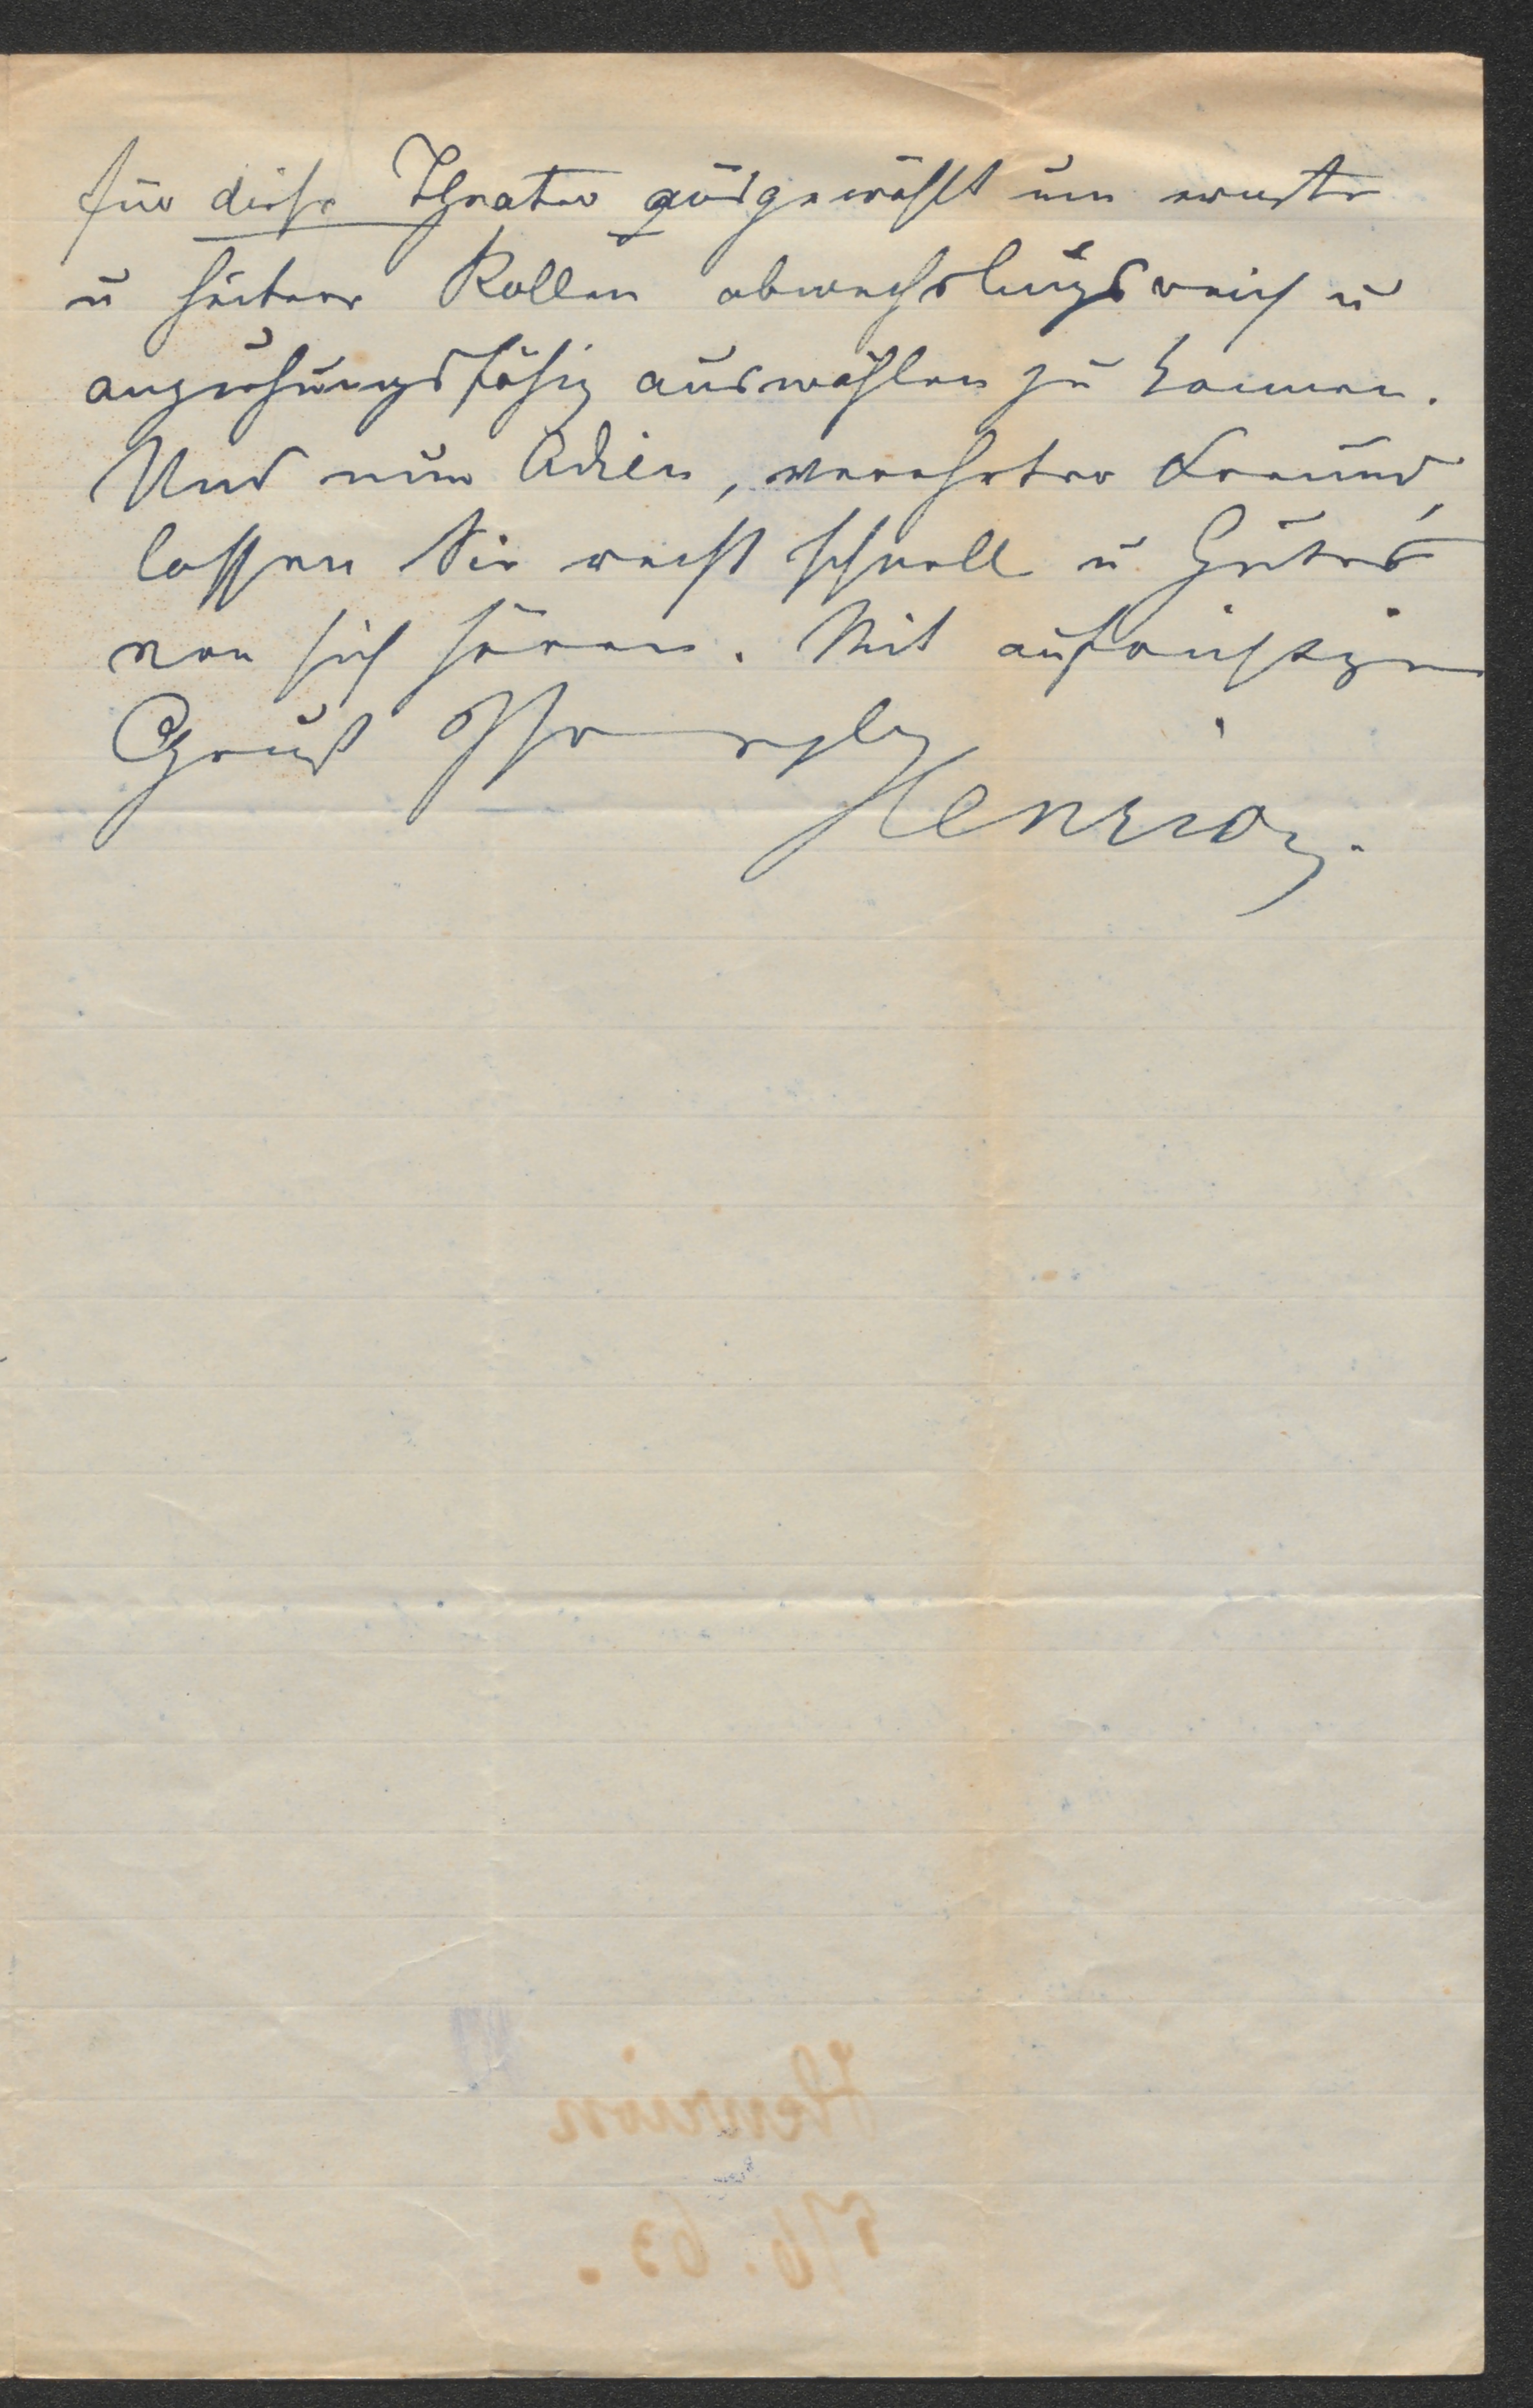 für diese Theater ausgewählt um ernste
u heitere Rollen abwechslungsreich u
anziehungsfähig auswählen zu können.
Und nun Adieu, verehrter Freund,
lassen Sie recht schnell u Gutes
von sich hören. Mit aufrichtigem
Gruß Ihr
Henrion.
Henrion
5/6. 63.